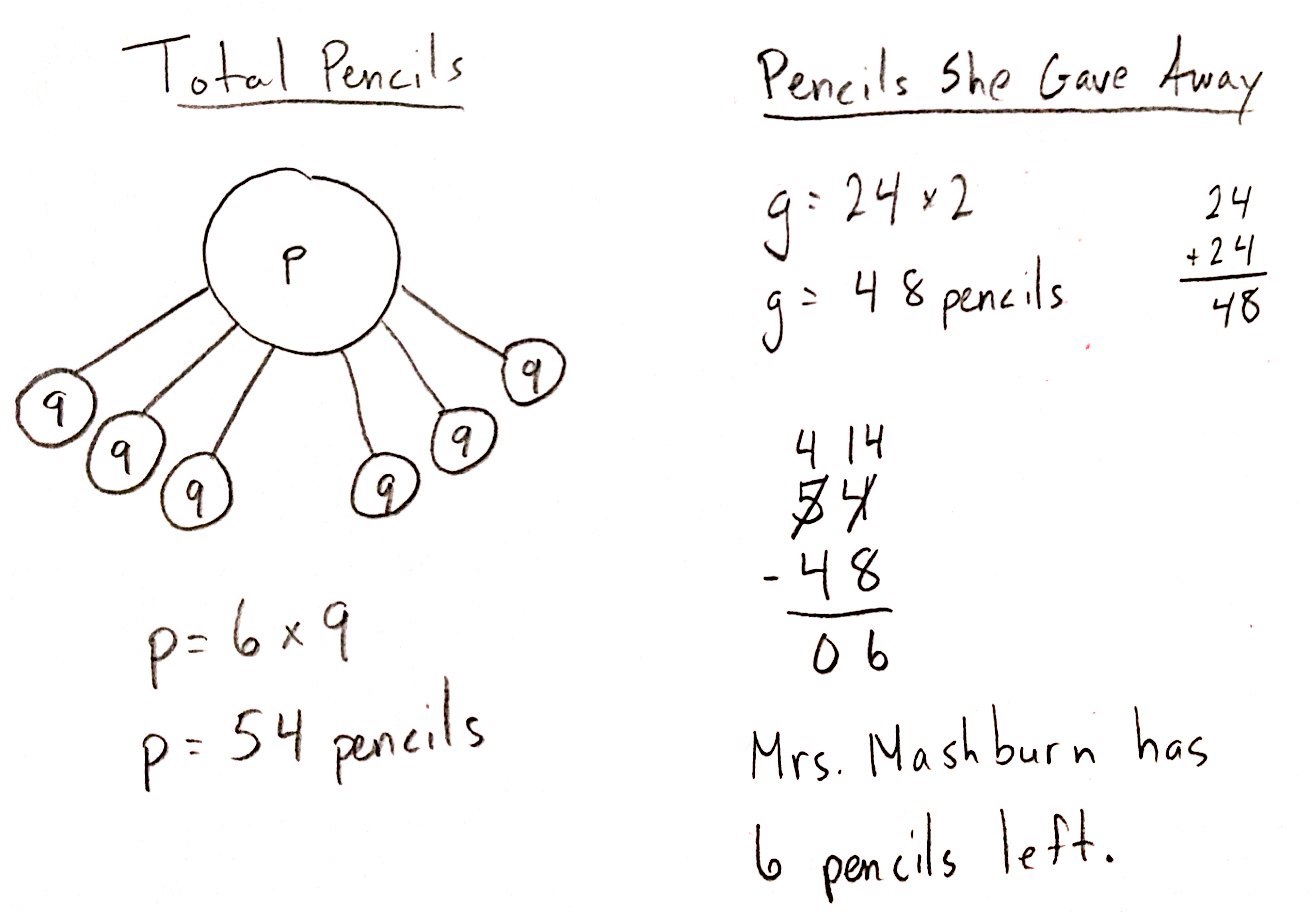 Total Pencils
p
9
9
9
9
9
9
p = 6 x 9
p = 54 pencils
Pencils She Gave Away
g = 24 x 2
g = 48 pencils
24
+24
48
4 14
5 4
- 4 8
0 6
Mrs. Mashburn has
6 pencils left.